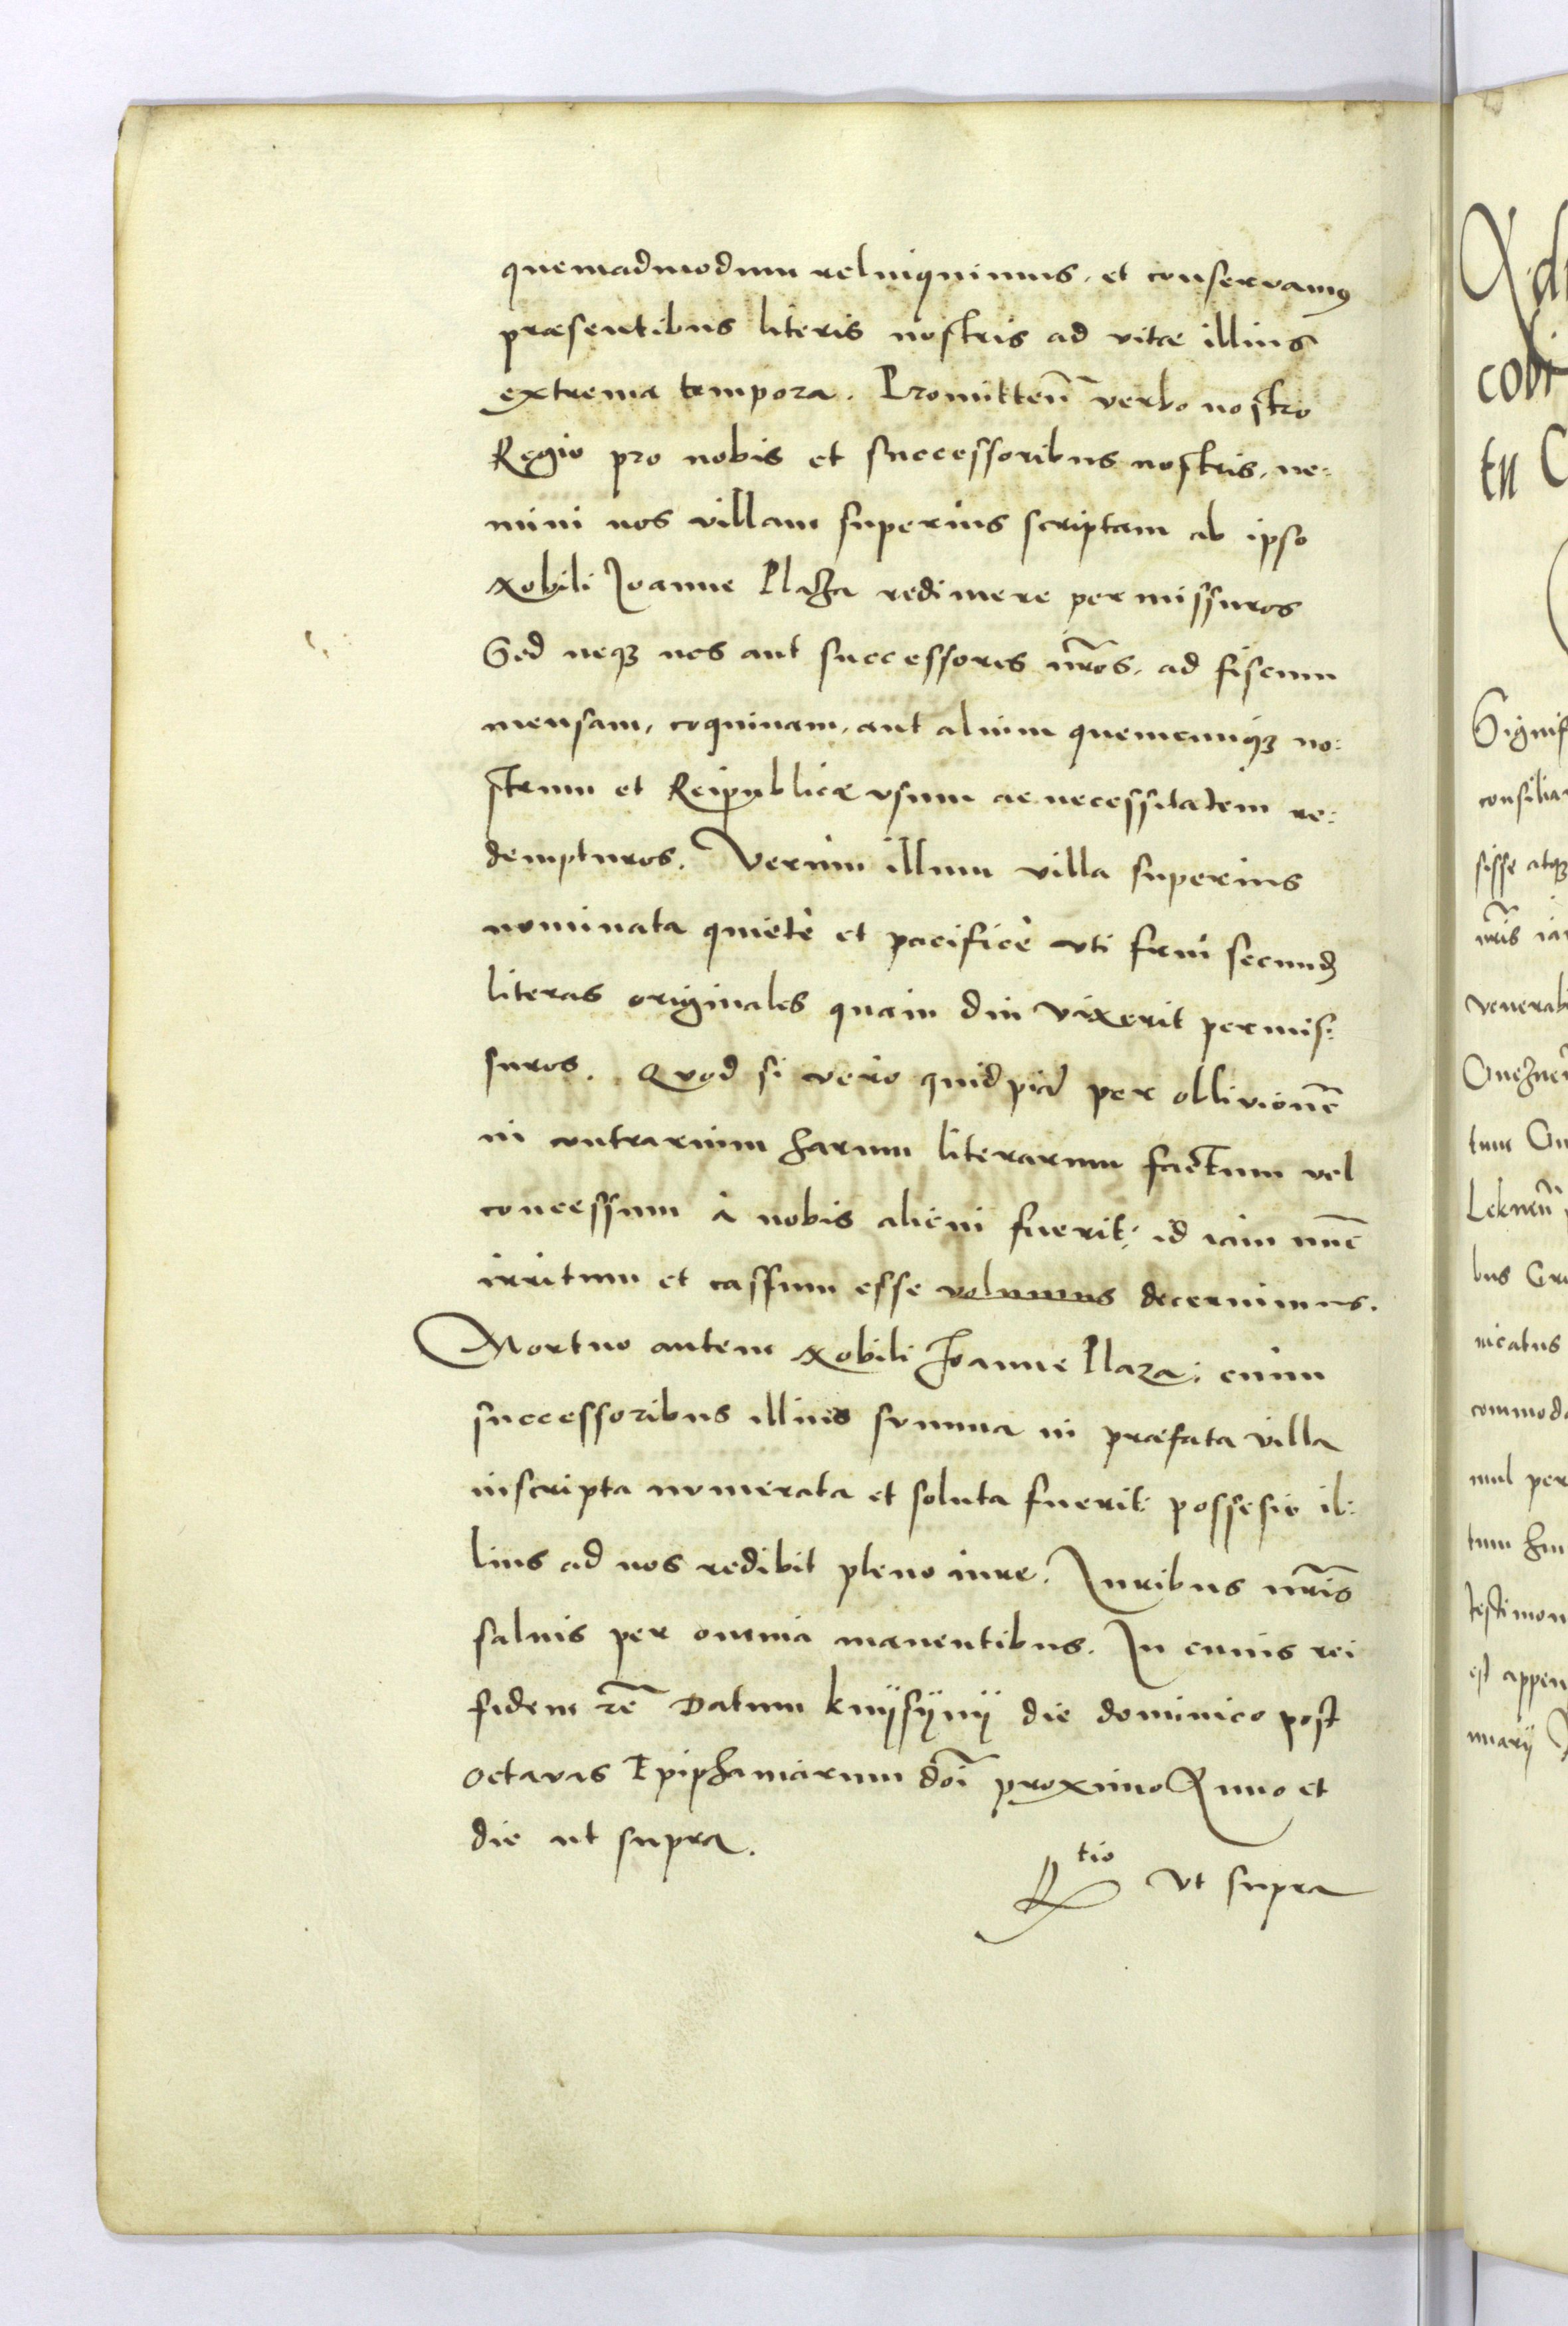 quemadmodum relinquimus, et conservamus
præsentibus literis nostris ad vitæ illius
extrema tempora. Promitten̄ verbo nostro
Regio pro nobis et successoribus nostris, ne:
mini nos villam superius scriptam ab ipso
Nobili Joanne Plaza redimere permissuros
Sed neqꝫ nos aut successores nr̄os, ad fiscum
mensam, coquinam, aut alium quemcunqꝫ no:
strum et Reipublicæ vsum ac necessitatem re:
dempturos. Verum illum villa superius
nominata quiete et pacifice vti frui secund
literas originales quam diu vixerit permis:
suros. Quod si vero quidpiā per oblivionē
in contrarium harum literarum factum vel
concessum à nobis alicui fuerit; id iam nūc
irritum et cassum esse volumus decernimus.
Mortuo autem Nobili Joanne Plaza; cum
successoribus illius summa in præfata villa
inscripta numerata et soluta fuerit: possesio il:
lius ad nos redibit pleno iure. Iuribus nr̄is
salvis per omnia manentibus. In cuius rei
fidem rē Datum knijsijnij die dominico post
octavas Epiphaniarum dōi proximo Anno et
die ut supra.
Rtio Vt supra
cobi
tu C
Signif
consilia
sisse atqꝫ
nr̄is ia
venerabi
Gnezne
tum
bus Gra
nicatus
commoda
mul per
testimon
est appen
nuarij